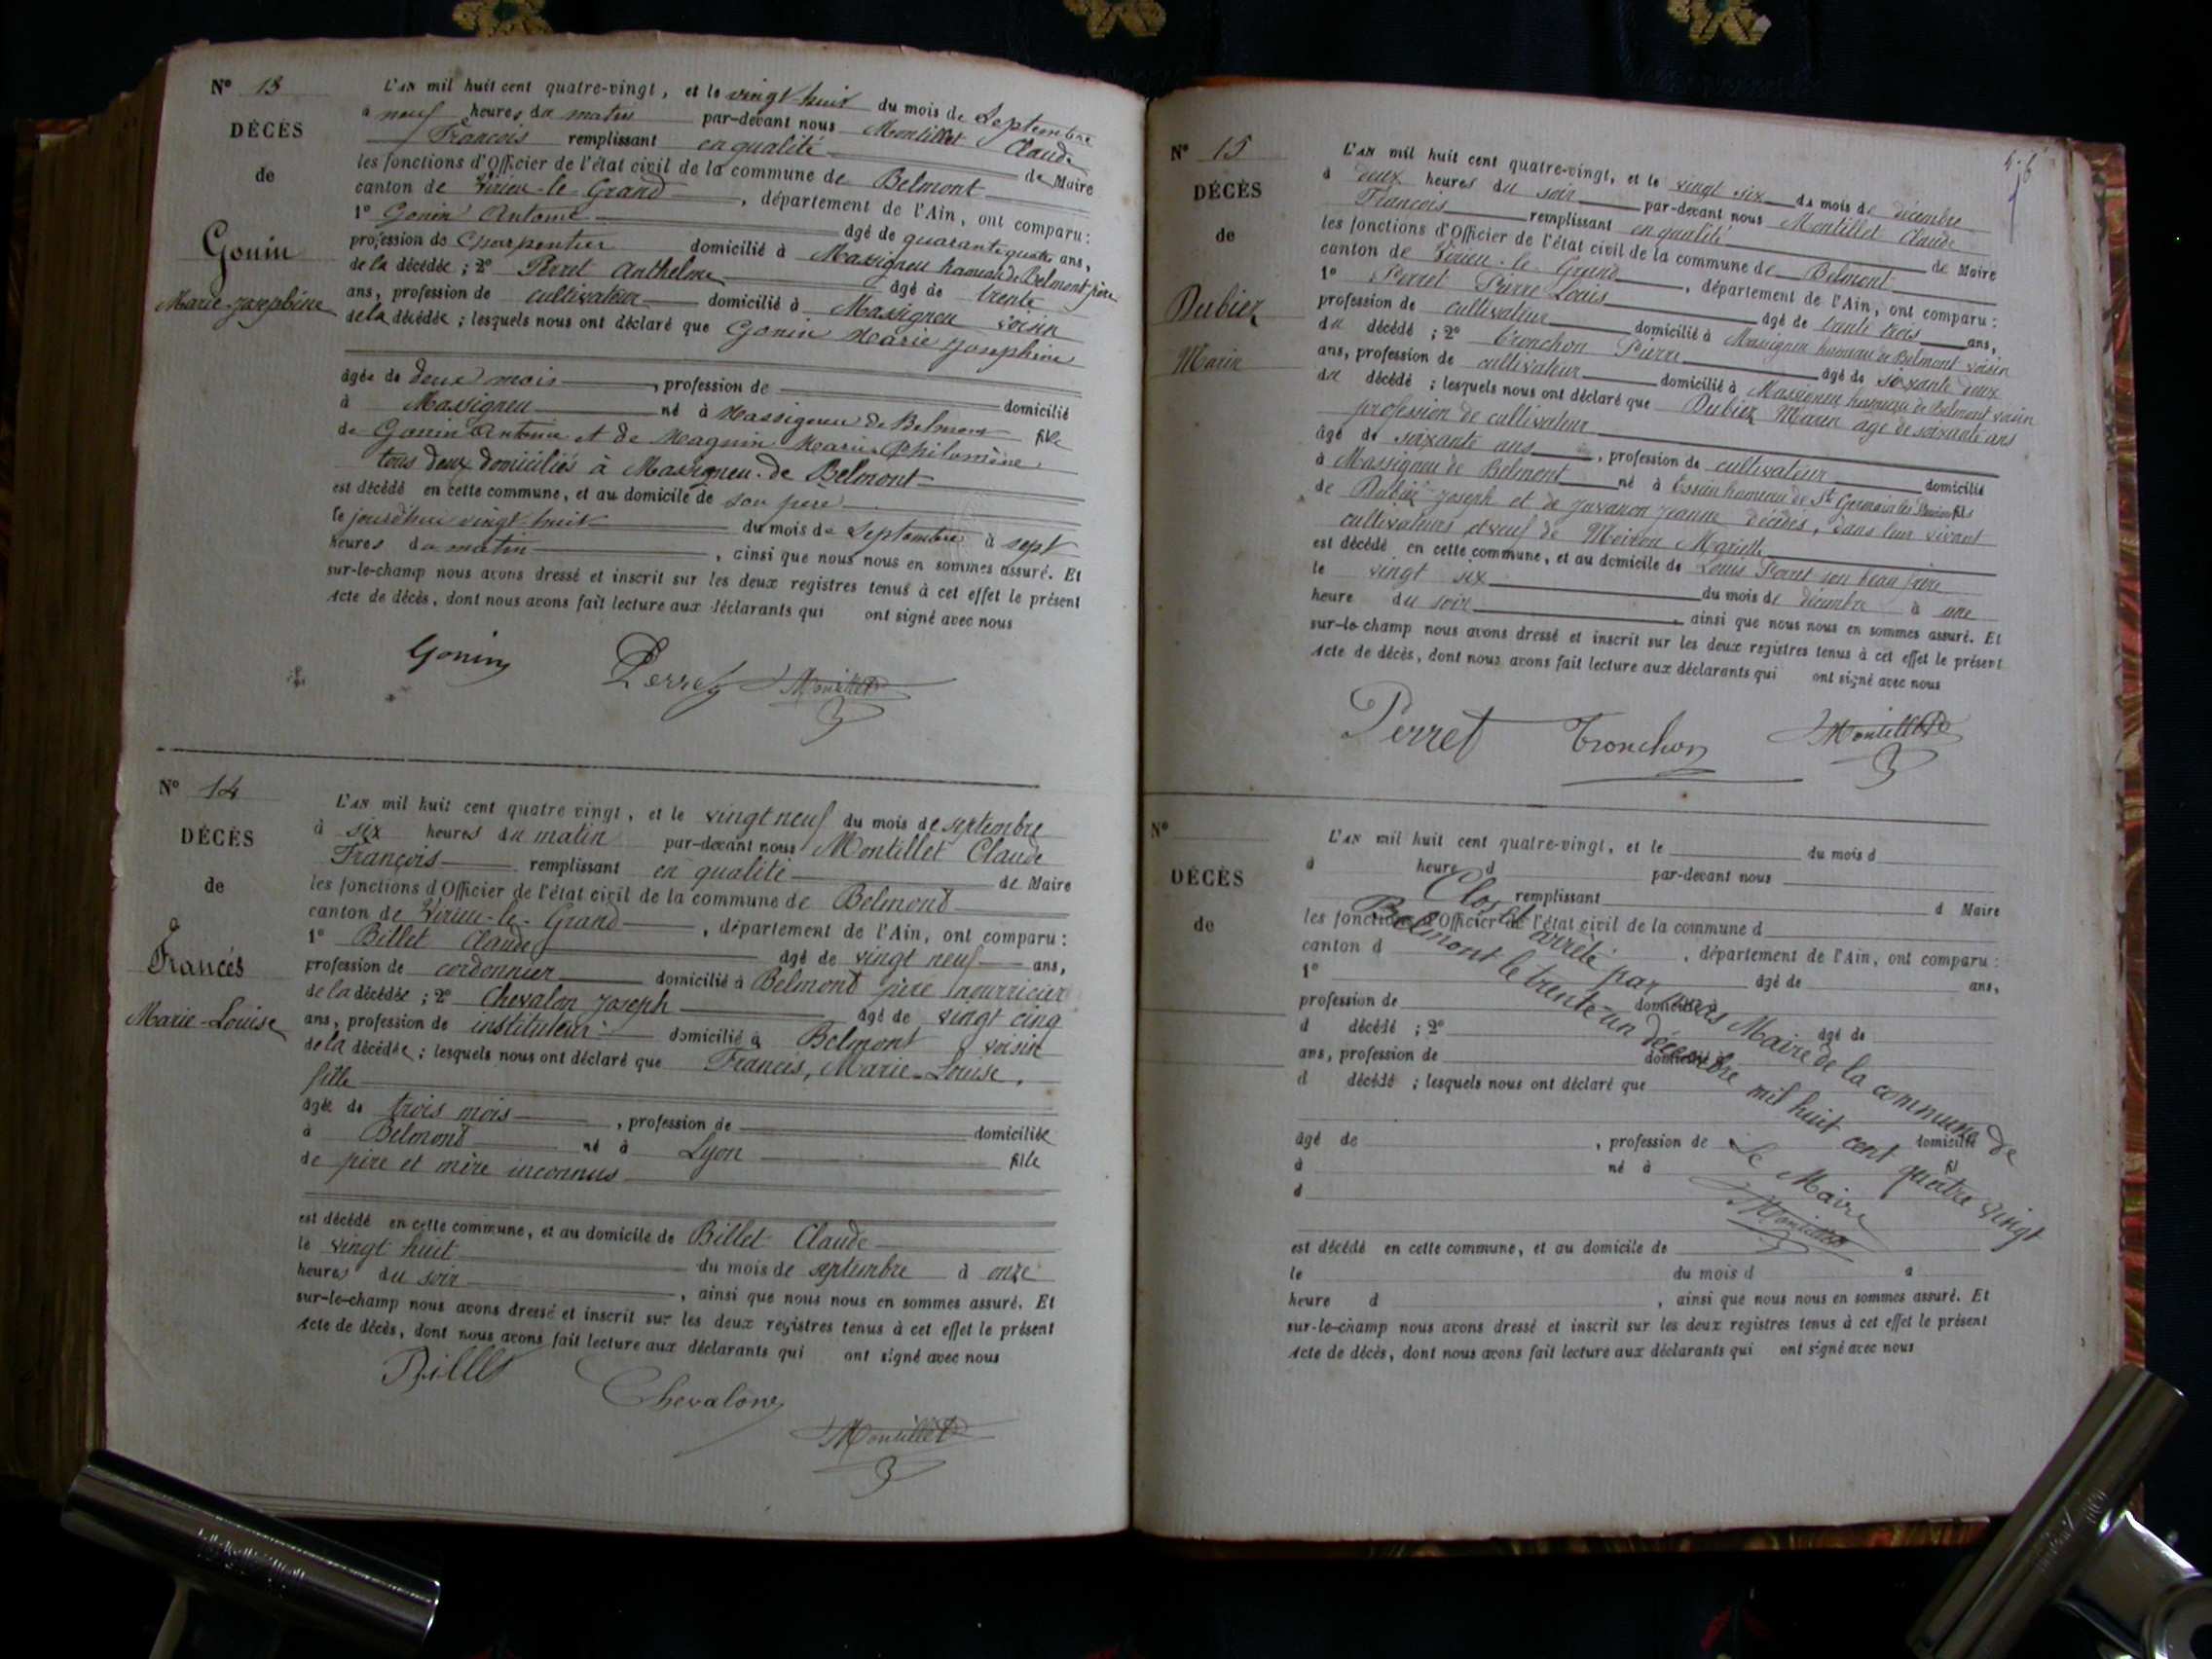 Nº 13
DÉCÈS
de
Gonin
Marie-Josephine
L'AN mil huit cent quatre-vingt, et le vingt huit du mois de Septembre
à neuf heures du matin par-devant nous Montillet Claude
François remplissant en qualité de Maire
les fonctions d'Officier de l'état civil de la commune de Belmont
canton de Virieu-le-Grand, département de l'Ain, ont comparu :
1º Gonin Antoine âgé de quarante quatre ans,
profession de Charpentier domicilié à Massigneu hameau de Belmont père
de la décédée ; 2º Perret Anthelme âgé de trente
ans, profession de cultivateur domicilié à Massigneu voisin
de la décédée ; lesquels nous ont déclaré que Gonin Marie Josephine
âgée de deux mois, profession de domicilié
à Massigneu né à Massigneu de Belmont fille
de Gonin Antoine et de Magnin Marie Philomène
tous deux domiciliés à Massigneu de Belmont
est décédé en cette commune, et au domicile de son père
le jourd'hui vingt huit du mois de Septembre à sept
heures du matin, ainsi que nous nous en sommes assuré. Et
sur-le-champ nous avons dressé et inscrit sur les deux registres tenus à cet effet le présent
Acte de décès, dont nous avons fait lecture aux déclarants qui ont signé avec nous
Gonin Perret Montillet
Nº 14
DÉCÈS
de
Francés
Marie-Louise
L'AN mil huit cent quatre vingt, et le vingt neuf du mois de septembre
à six heures du matin par-devant nous Montillet Claude
François remplissant en qualité de Maire
les fonctions d'Officier de l'état civil de la commune de Belmont
canton de Virieu-le-Grand, département de l'Ain, ont comparu :
1º Billet Claude âgé de vingt neuf ans,
profession de cordonnier domicilié à Belmont père nourricier
de la décédée ; 2º Chevalon Joseph âgé de vingt cinq
ans, profession de instituteur domicilié à Belmont voisin
de la décédée ; lesquels nous ont déclaré que Francés, Marie-Louise,
fille
âgée de trois mois, profession de domiciliée
à Belmont né à Lyon fille
de père et mère inconnus
est décédé en cette commune, et au domicile de Billet Claude
le vingt huit du mois de septembre à onze
heures du soir, ainsi que nous nous en sommes assuré. Et
sur-le-champ nous avons dressé et inscrit sur les deux registres tenus à cet effet le présent
Acte de décès, dont nous avons fait lecture aux déclarants qui ont signé avec nous
Billet Chevalon
Montillet
Nº 15
DÉCÈS
de
Dubiez
Marin
L'AN mil huit cent quatre-vingt, et le vingt six du mois de décembre
à deux heures du soir par-devant nous Montillet Claude
François remplissant en qualité de Maire
les fonctions d'Officier de l'état civil de la commune de Belmont
canton de Virieu-le-Grand, département de l'Ain, ont comparu :
1º Perret Pierre Louis âgé de trente trois ans,
profession de cultivateur domicilié à Massigneu hameau de Belmont voisin
du décédé ; 2º Tronchon Pierre âgé de soixante deux
ans, profession de cultivateur domicilié à Massigneu hameau de Belmont voisin
du décédé ; lesquels nous ont déclaré que Dubiez Marin âgé de soixante ans
profession de cultivateur
âgé de soixante ans, profession de cultivateur domicilié
à Massigneu de Belmont né à hameau de St Germain les fils
de Dubiez Joseph et de Juvanon Jeanne décédés, dans leur vivant
cultivateurs et veuf de Moiron Mariette
est décédé en cette commune, et au domicile de Louis Perret son beau frère
le vingt six du mois de décembre à une
heure du soir, ainsi que nous nous en sommes assuré. Et
sur-le-champ nous avons dressé et inscrit sur les deux registres tenus à cet effet le présent
Acte de décès, dont nous avons fait lecture aux déclarants qui ont signé avec nous
Perret Tronchon Montillet
Nº
DÉCÈS
de
L'AN mil huit cent quatre-vingt, et le du mois d
à heure d par-devant nous
remplissant d Maire
les fonctions d'Officier de l'état civil de la commune d
canton d , département de l'Ain, ont comparu :
1º âgé de ans,
profession de domicilié à
d décédé ; 2º âgé de
ans, profession de domicilié à
d décédé ; lesquels nous ont déclaré que
âgé de , profession de domicilié
à né à fil
d
est décédé en cette commune, et au domicile de
le du mois d à
heure d , ainsi que nous nous en sommes assuré. Et
sur-le-champ nous avons dressé et inscrit sur les deux registres tenus à cet effet le présent
Acte de décès, dont nous avons fait lecture aux déclarants qui ont signé avec nous
Clos et arrêté par nous Maire de la commune de
Belmont le trente-un décembre mil huit cent quatre vingt
Le Maire
Montillet